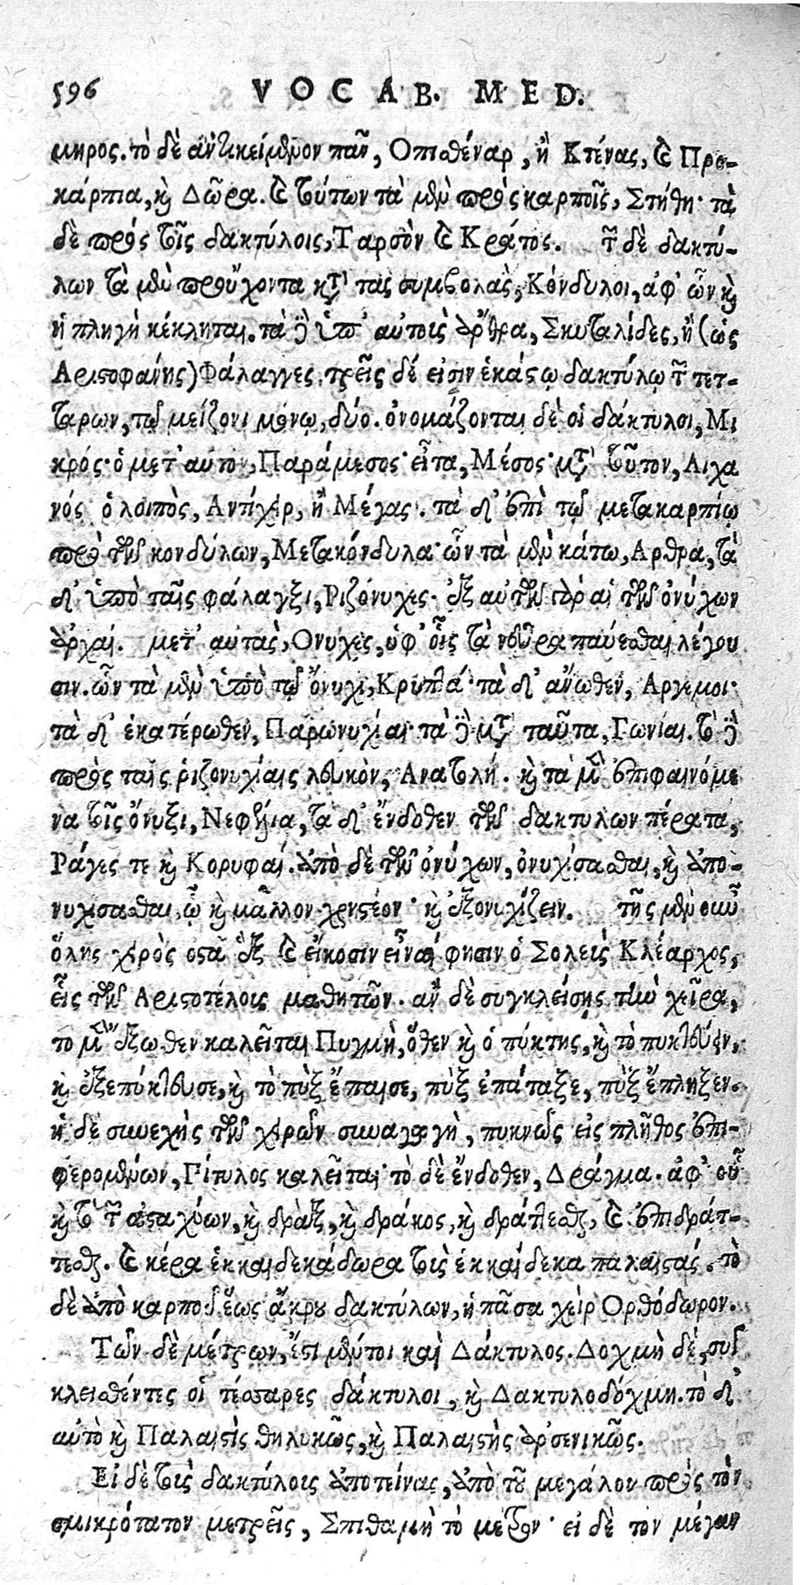 596 VOCAB. MED.
μηρος. τὸ δὲ ἀντικείμενον πᾶν, Οπισθέναρ, ἢ Κτένας, καὶ Προ-
κάρπια, καὶ Δῶρα. καὶ τούτων τὰ μὲν πρὸς καρποῖς, Στήθη· τὰ
δὲ πρὸς τοῖς δακτύλοις, Ταρσὸν καὶ Κράτος. τῶν δὲ δακτύ-
λων τὰ μὲν προὔχοντα κατὰ τὰς συμβολὰς, Κόνδυλοι, ἀφ' ὧν καὶ
ἡ πληγὴ κέκληται. τὰ δὲ ὑπ' αὐτοῖς ἄρθρα, Σκυταλίδες, ἢ (ὡς
Αριστοφάνης) Φάλαγγες. τρεῖς δέ εἰσιν ἑκάστῳ δακτύλῳ τῶν τετ-
τάρων, τῷ μείζονι μόνῳ, δύο. ὀνομάζονται δὲ οἱ δάκτυλοι, Μι
κρός· ὁ μετ' αὐτὸν, Παράμεσος· εἶτα, Μέσος· μετὰ τοῦτον, Λιχα
νός· ὁ λοιπὸς, Αντίχειρ, ἢ Μέγας. τὰ δ' ἐπὶ τῷ μετακαρπίῳ
πρὸ τῶν κονδύλων, Μετακόνδυλα· ὧν τὰ μὲν κάτω, Αρθρα, τὰ
δ' ὑπὸ ταῖς φάλαγξι, Ριζόνυχες· ἐξ αὐτῶν γὰρ αἱ τῶν ὀνύχων
ἀρχαί. μετ' αυτὰς, Ονυχες, ὑφ' οἷς τὰ νεῦρα παύεσθαι λέγου
σιν. ὧν τὰ μὲν ὑπὸ τῷ ὄνυχι, Κρυπτά· τὰ δ' ἄνωθεν, Αργεμοι·
τὰ δ' ἑκατέρωθεν, Παρωνυχίαι· τὰ δὲ μετὰ ταῦτα, Γωνίαι. τὸ δὲ
πρὸς ταῖς ῥιζονυχίαις λευκὸν, Ανατολή. καὶ τὰ μὲν ἐπιφαινόμε
να τοῖς ὄνυξι, Νεφέλια, τὰ δ' ἔνδοθεν τῶν δακτύλων πέρατα,
Ράγες τε καὶ Κορυφαί. ἀπὸ δὲ τῶν ὀνύχων, ὀνυχίσασθαι, καὶ ἀπο-
νυχίσασθαι, ᾧ καὶ μᾶλλον χρηστέον· καὶ ἐξονυχίζειν. τῆς μὲν οὖν
ὅλης χειρὸς ὀστᾶ ἓξ καὶ εἴκοσιν εἶναί φησιν ὁ Σολεὺς Κλέαρχος,
εἷς τῶν Αριστοτέλους μαθητῶν. ἂν δὲ συγκλείσῃς τὴν χεῖρα,
τὸ μὲν ἔξωθεν καλεῖται Πυγμὴ, ὅθεν καὶ ὁ πύκτης, καὶ τὸ πυκτεύειν,
καὶ ἐξεπύκτευσε, καὶ τὸ πὺξ ἔπαισε, πὺξ ἐπάταξε, πὺξ ἔπληξεν.
ἡ δὲ συνεχὴς τῶν χειρῶν συναγωγὴ, πυκνῶς εἰς πλῆθος ἐπι-
φερομένων, Πίτυλος καλεῖται· τὸ δὲ ἔνδοθεν, Δράγμα. ἀφ' οὗ
καὶ τὸ τῶν ἀσταχύων, καὶ δρὰξ, καὶ δράκος, καὶ δράττεσθαι, καὶ ἐπιδράτ-
τεσθαι. καὶ κέρα ἑκκαιδεκάδωρα τοὺς ἑκκαίδεκα παλαιστάς. τὸ
δὲ ἀπὸ καρποῦ ἕως ἄκρου δακτύλων, ἡ πᾶσα χεὶρ Ορθόδωρον.
Τῶν δὲ μέτρων, ἔστι μέντοι καὶ Δάκτυλος. Δοχμὴ δὲ, συγ
κλεισθέντες οἱ τέσσαρες δάκτυλοι, καὶ Δακτυλοδόχμη. τὸ δ'
αὐτὸ καὶ Παλαιστὴ θηλυκῶς, καὶ Παλαιστὴς ἀρσενικῶς.
Εἰ δὲ τοὺς δακτύλους ἀποτείνας, ἀπὸ τοῦ μεγάλου πρὸς τὸν
σμικρότατον μετρεῖς, Σπιθαμὴ τὸ μέτρον· εἰ δὲ τον μέγαν